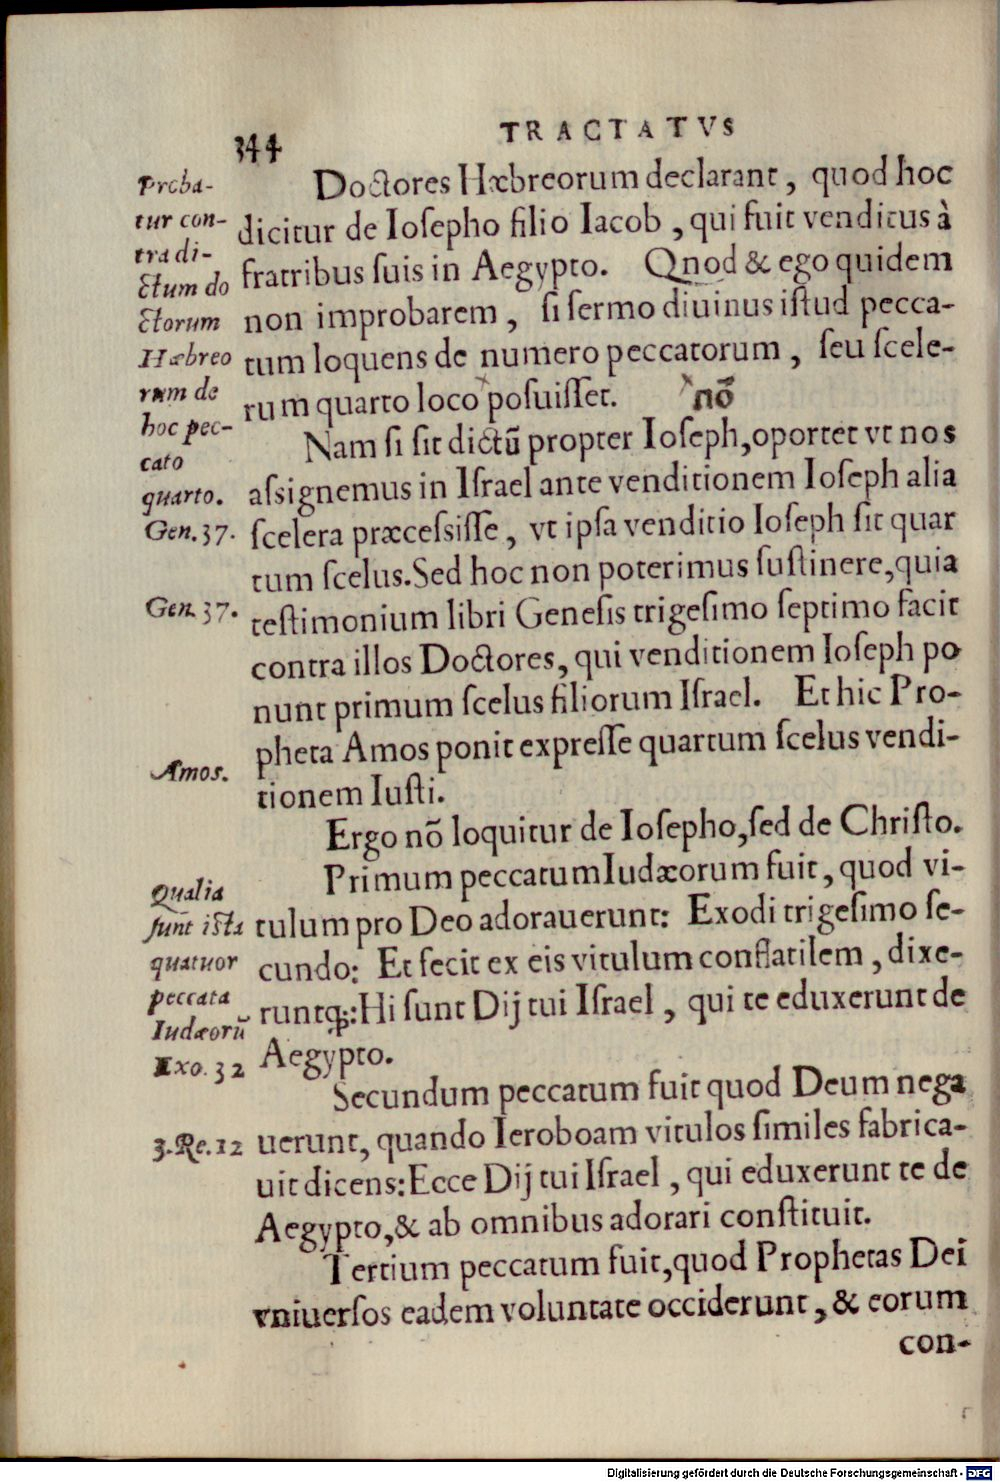 344
TRACTATVS
Proba-
tur con-
tra di-
ctum do
ctorum
Hæbreo
rum de
hoc pec-
cato
quarto.
Gen. 37.
Gen. 37.
Amos.
Qualia
sunt ista
quatuor
peccata
Iudæorũ
Exo. 32
3. Re. 12
Doctores Hæbreorum declarant, quod hoc
dicitur de Iosepho filio Iacob, qui fuit venditus à
fratribus suis in Aegypto. Qnod & ego quidem
non improbarem, si sermo diuinus istud pecca-
tum loquens de numero peccatorum, seu scele-
rum quarto loco posuisset. nõ
Nam si sit dictũ propter Ioseph, oportet vt nos
assignemus in Israel ante venditionem Ioseph alia
scelera præcessisse, vt ipsa venditio Ioseph sit quar
tum scelus. Sed hoc non poterimus sustinere, quia
testimonium libri Genesis trigesimo septimo facit
contra illos Doctores, qui venditionem Ioseph po
nunt primum scelus filiorum Israel. Et hic Pro-
pheta Amos ponit expresse quartum scelus vendi-
tionem Iusti.
Ergo nõ loquitur de Iosepho, sed de Christo.
Primum peccatum Iudæorum fuit, quod vi-
tulum pro Deo adorauerunt: Exodi trigesimo se-
cundo: Et fecit ex eis vitulum conflatilem, dixe-
runtq́;: Hi sunt Dij tui Israel, qui te eduxerunt de
Aegypto.
Secundum peccatum fuit quod Deum nega
uerunt, quando Ieroboam vitulos similes fabrica-
uit dicens: Ecce Dij tui Israel, qui eduxerunt te de
Aegypto, & ab omnibus adorari constituit.
Tertium peccatum fuit, quod Prophetas Dei
vniuersos eadem voluntate occiderunt, & eorum
con-
Digitalisierung gefördert durch die Deutsche Forschungsgemeinschaft - DFG